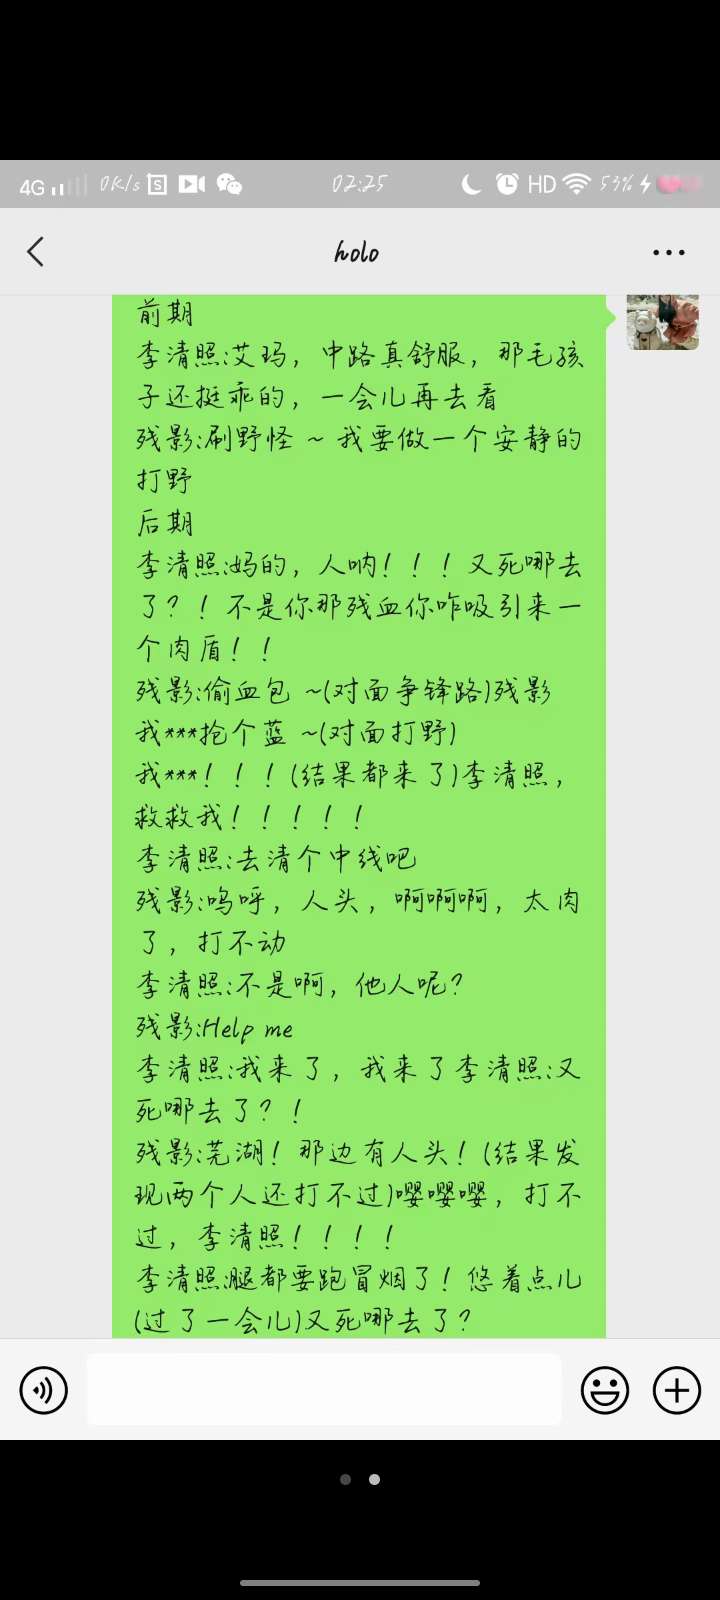 4G 0K/s 02:25 HD 53%
holo
前期
李清照:艾玛，中路真舒服，那毛孩
子还挺乖的，一会儿再去看
残影:刷野怪 ~ 我要做一个安静的
打野
后期
李清照:妈的，人呐！！！又死哪去
了？！不是你那残血你咋吸引来一
个肉盾！！
残影:偷血包 ~(对面争锋路)残影
我***抢个蓝 ~(对面打野)
我***！！！(结果都来了)李清照，
救救我！！！！！
李清照:去清个中线吧
残影:呜呼，人头，啊啊啊，太肉
了，打不动
李清照:不是啊，他人呢？
残影:Help me
李清照:我来了，我来了李清照:又
死哪去了？！
残影:芜湖！那边有人头！(结果发
现两个人还打不过)嘤嘤嘤，打不
过，李清照！！！！
李清照:腿都要跑冒烟了！悠着点儿
(过了一会儿)又死哪去了？